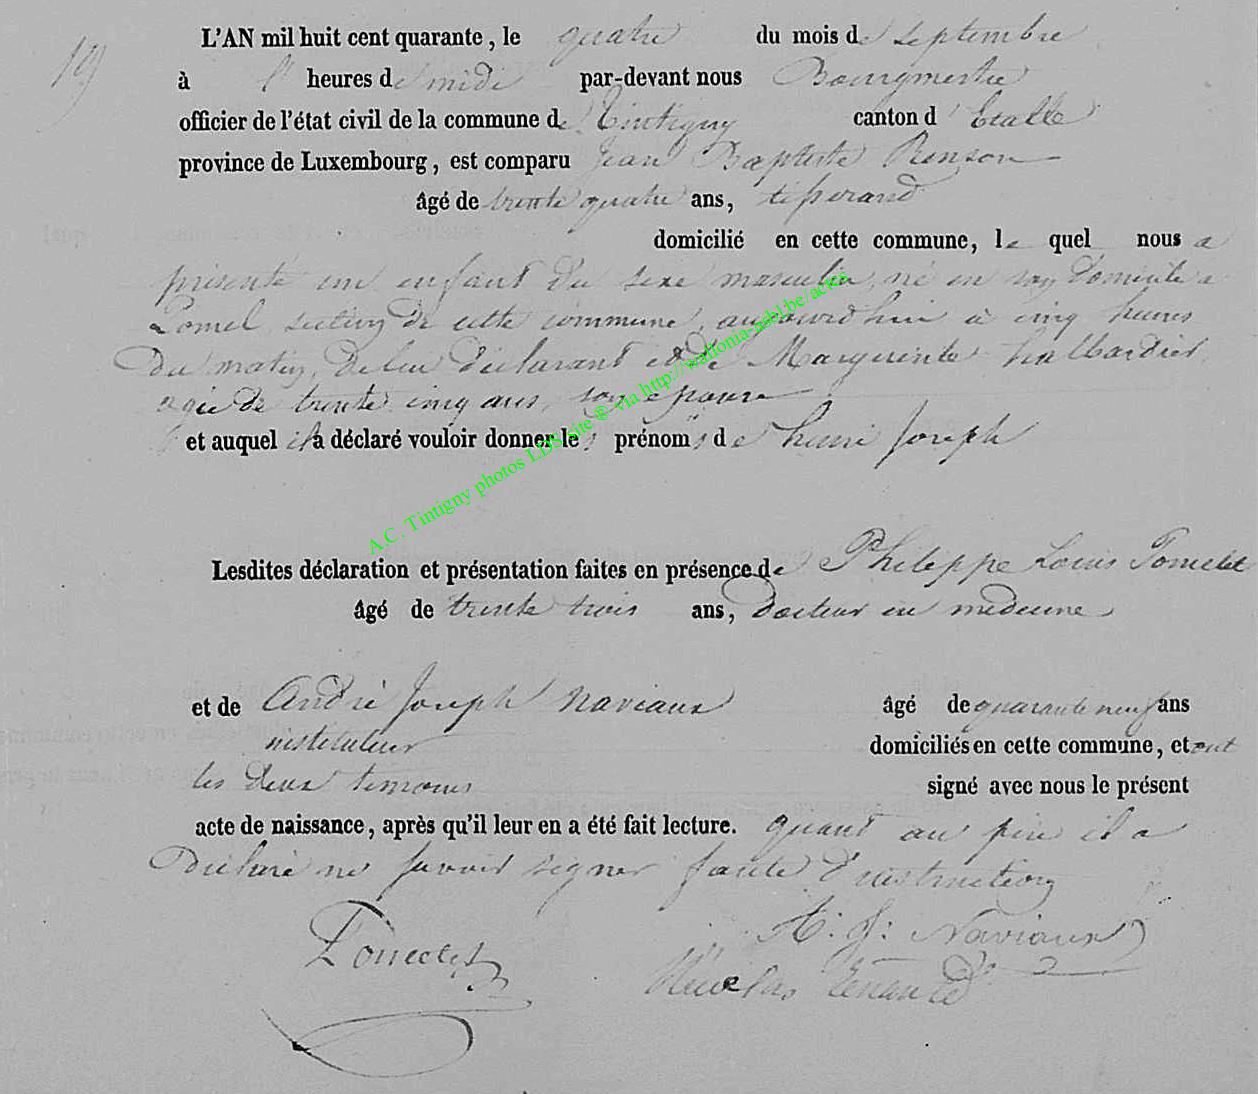 19
L'AN mil huit cent quarante, le quatre du mois de septembre
à heures de midi par-devant nous Bourgmestre
officier de l'état civil de la commune de Tintigny canton d'Etalle
province de Luxembourg, est comparu Jean Baptiste Renson
âgé de trente quatre ans, tisserand
domicilié en cette commune, le quel nous a
présenté un enfant du sexe masculin, né en son domicile a
section de cette commune, aujourd'hui à cinq heures
du matin, de lui déclarant et de Marguerite hallbardier
agée de trente cinq ans, son épouse
et auquel il a déclaré vouloir donner les prénoms de henri Joseph
A.C. Tintigny photos LDS site ® via http://wallonia-asbl.be/actes
Lesdites déclaration et présentation faites en présence de Philippe Louis Pomelet
âgé de trente trois ans, docteur en médecine
et de André Joseph Naviaux âgé de quarante neuf ans
instituteur domiciliés en cette commune, et ont
les deux temoins signé avec nous le présent
acte de naissance, après qu'il leur en a été fait lecture. quant au père il a
déclaré ne savoir signer faute d'instruction
A: J: Naviaux
Nicolas